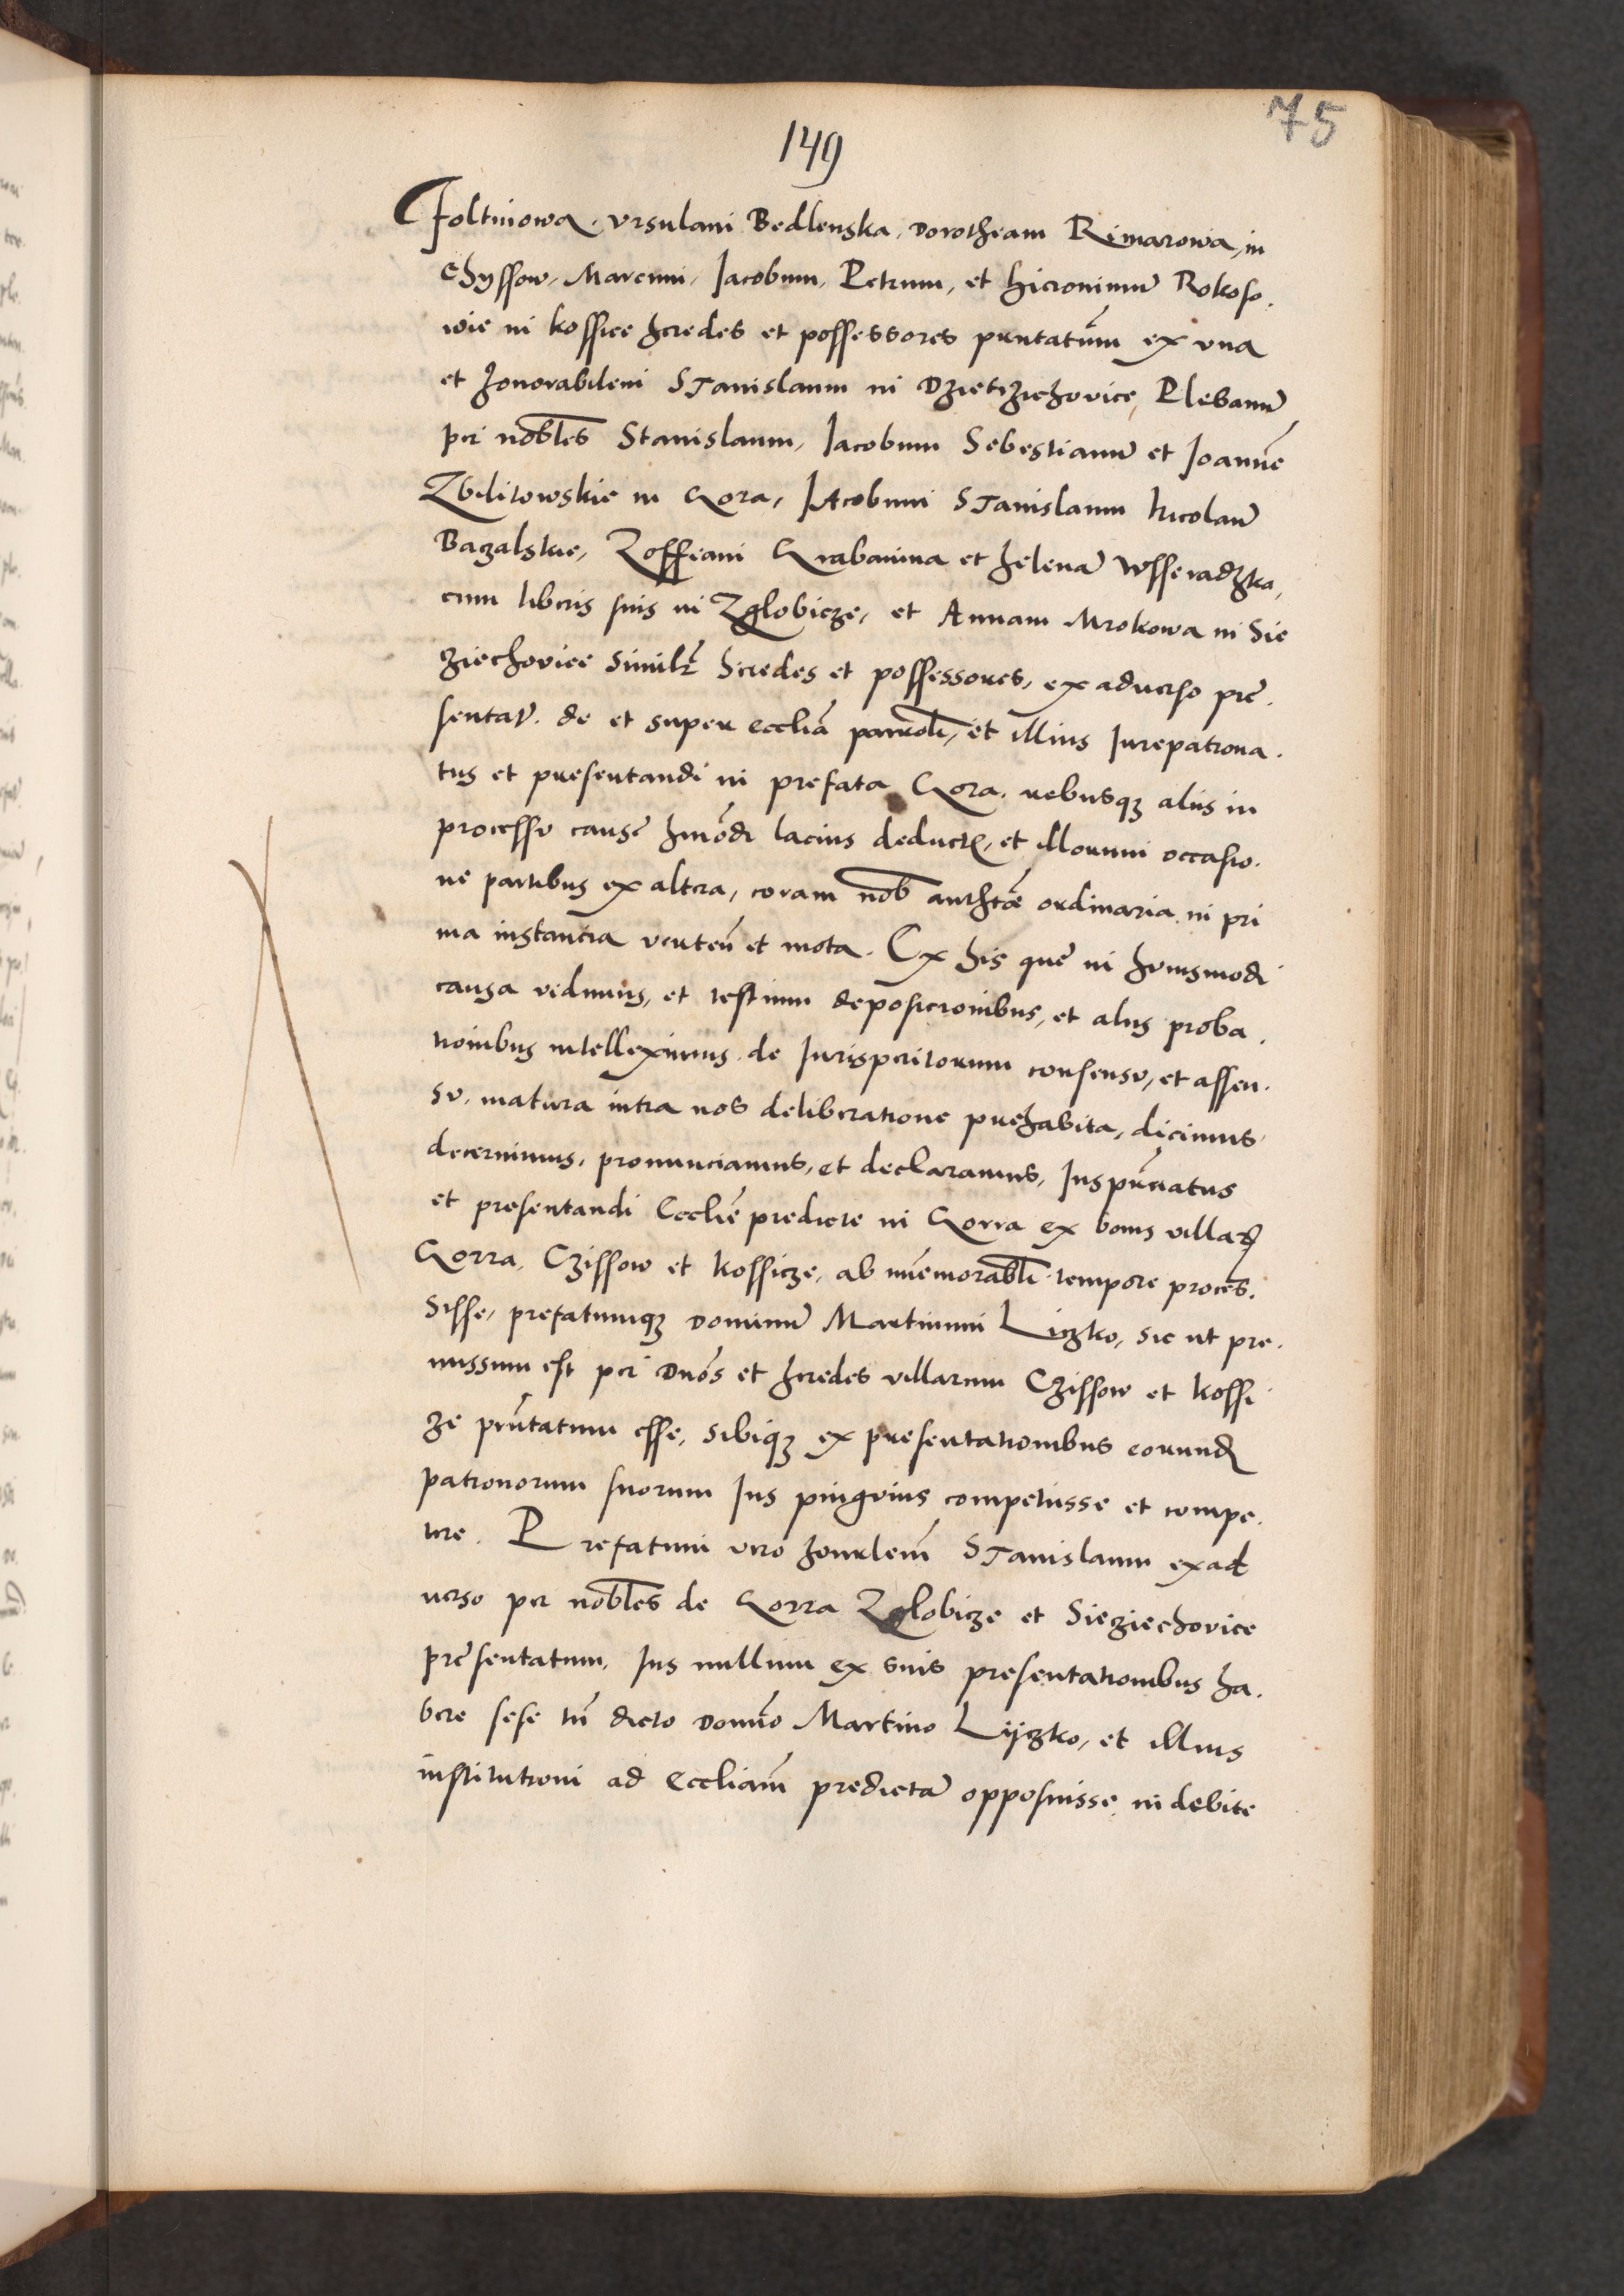 75
149
Cfoltinowa. Vrsulam Bedlenska, Dorotheam Rimarowa, in
Chyssow, Marcum, Jacobum, Petrum, et Hieronimū Rokoso.
wie in kossice heredes et possessores pn̄tatum ex vna
et honorabilem Stanislaum in Dzietziechovice, Plebanū
per nob̄les Stanislaum, Jacobum Sebestianū et Joannē
Zbilitowskie in Gora, Jacobum Stanislaum Nicolaū
Bagalskie, Zoffiam Grabanina et helenā Wsseradzka,
cum liberis suis in Zglobicze, et Annam Mrokowa in Sie
ziechovice similr̄ heredes et possessores, ex aduerso pre.
sentatū. de et super eccliā parrochli, et illius Jurepatrona.
tus et presentandi in prefata Gora. rebusqȝ aliis in
processu causē hmōdi lacius deductꝭ, et illorum occasio.
ne partibus ex altera, coram nob̄ authtē ordinaria in pri
ma instantia verten̄ et mota. Ex his quē in huiusmodi
causa vidimus, et testium deposicionibus, et aliis proba.
tionibus intelleximus. de Jurisperitorum consensu, et assen.
su. matura intra nos deliberatione prehabita, dicimus
decernimus, pronunciamus, et declaramus, Juspr̄natus
et presentandi Eccliē predicte in Gorra ex bonis villaꝝ
Gorra, Czissow et kossicze, ab im̄emorabli tempore proces.
sisse, prefatumqȝ dominū Martinum Liczko, sic ut pre.
missum est per Dnōs et heredes villarum Czissow et kossi
ze pn̄tatum esse, sibiqȝ ex presentationibus eorund
patronorum suorum Jus pinguius competiisse et compe.
tere. Prefatum vero honrlem̄ Stanislaum exad
uerso per nob̄les de Gorra Zglobicze et Sieziechovice
presentatum, Jus nullum ex suis presentationibus ha.
bere sese tn̄ dicto domīno Martino Lyczko, et illius
institutioni ad Eccliam̄ predictā opposuisse indebite